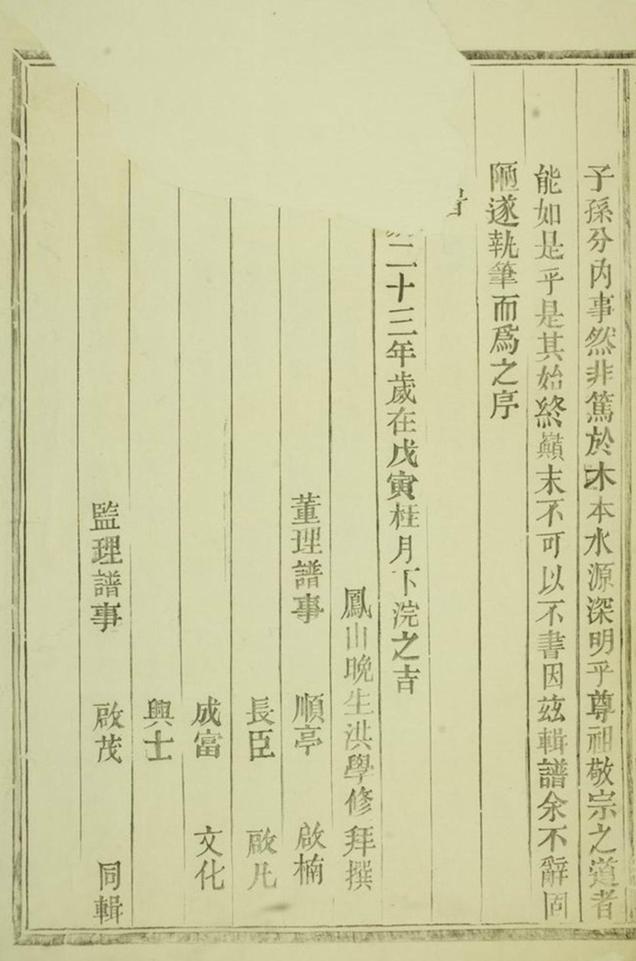 子孫分內事然非篤於木本水源深明乎尊祖敬宗之道者
能如是乎是其始終巔末不可以不書因玆輯譜余不辭固
陋遂執筆而爲之序
二十三年歲在戊寅桂月下浣之吉
鳳山晚生洪學修拜撰
董理譜事 順亭 啟楠
長臣 啟凡
成富 文化
興士
監理譜事 啟茂 同輯